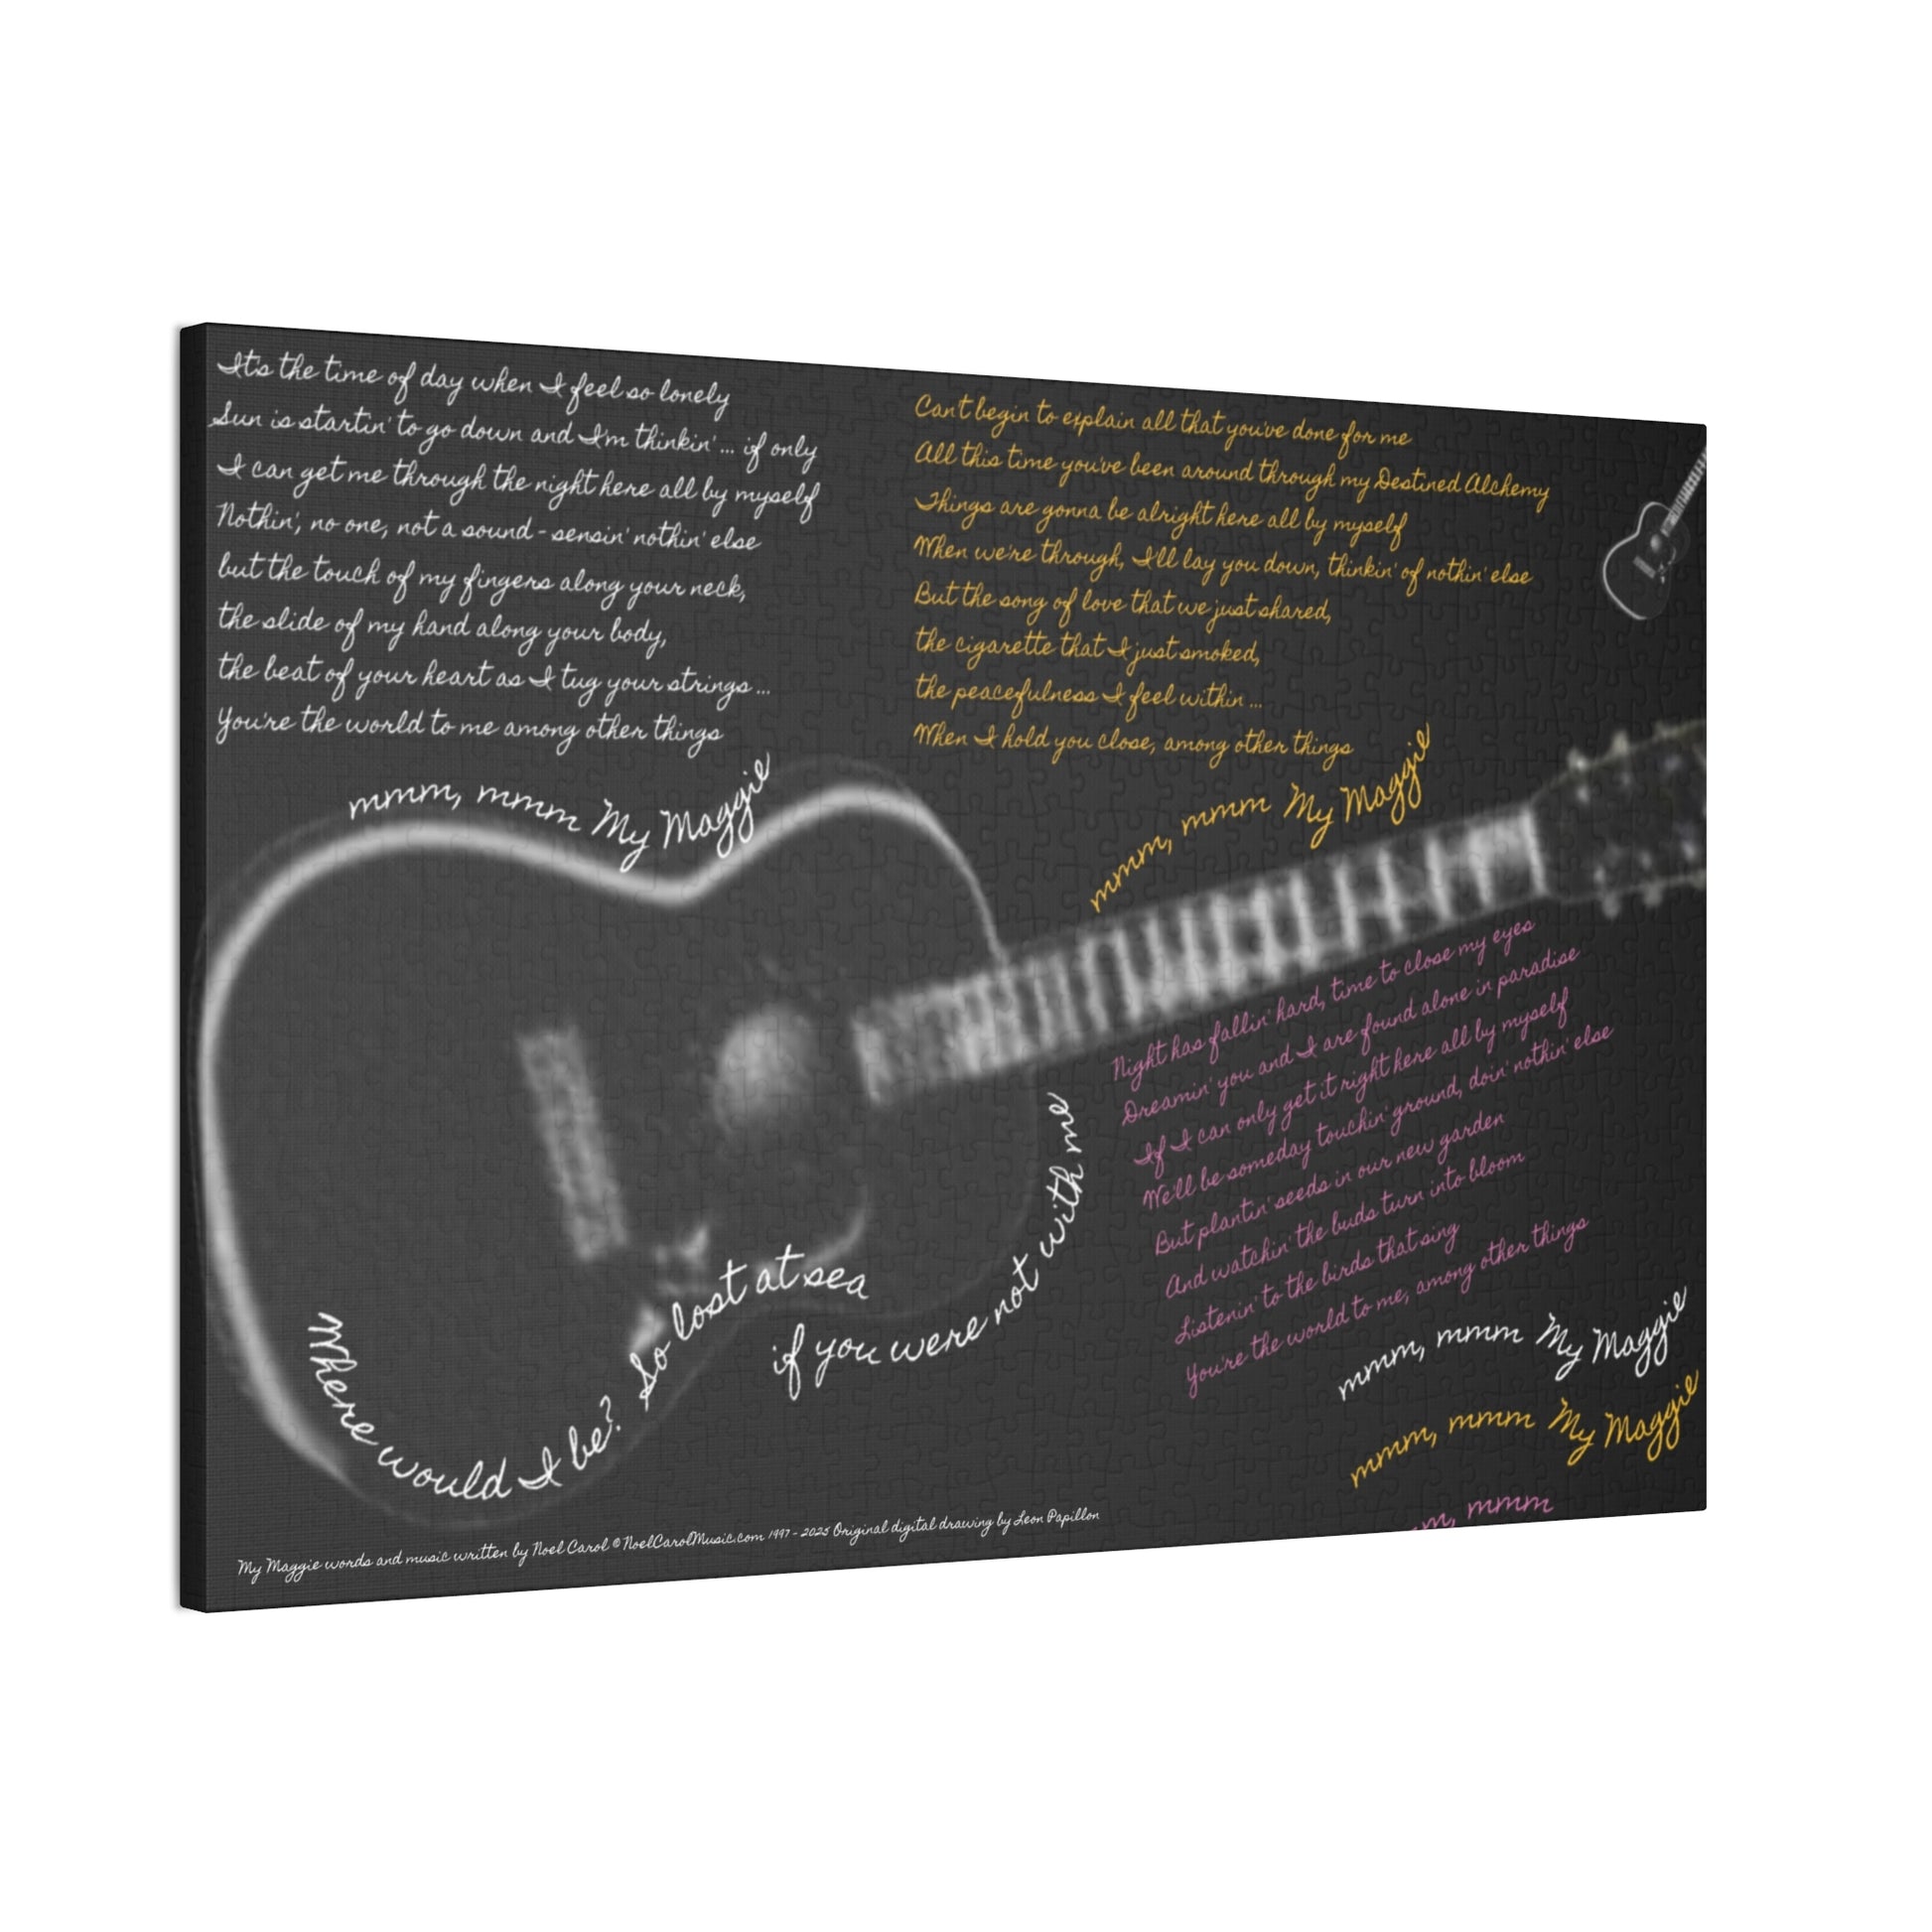 It's the time of day when I feel so lonely
Sun is startin' to go down and I'm thinkin' ... if only
I can get me through the night here all by myself
Nothin', no one, not a sound - sensin' nothin' else
but the touch of my fingers along your neck,
the slide of my hand along your body,
the beat of your heart as I tug your strings ...
You're the world to me among other things
mmm, mmm My Maggie
Can't begin to explain all that you've done for me
All this time you've been around through my Destined Alchemy
Things are gonna be alright here all by myself
When we're through, I'll lay you down, thinkin' of nothin' else
But the song of love that we just shared,
the cigarette that I just smoked,
the peacefulness I feel within ...
When I hold you close, among other things
mmm, mmm My Maggie
Where would I be? So lost at sea
if you were not with me
Night has fallin' hard, time to close my eyes
Dreamin' you and I are found alone in paradise
If I can only get it right here all by myself
We'll be someday touchin' ground, doin' nothin' else
But plantin' seeds in our new garden
And watchin' the buds turn into bloom
Listenin' to the birds that sing
You're the world to me, among other things
mmm, mmm My Maggie
mmm, mmm My Maggie
m, mmm
My Maggie words and music written by Noel Carol © NoelCarolMusic.com 1997 - 2025 Original digital drawing by Leon Papillon